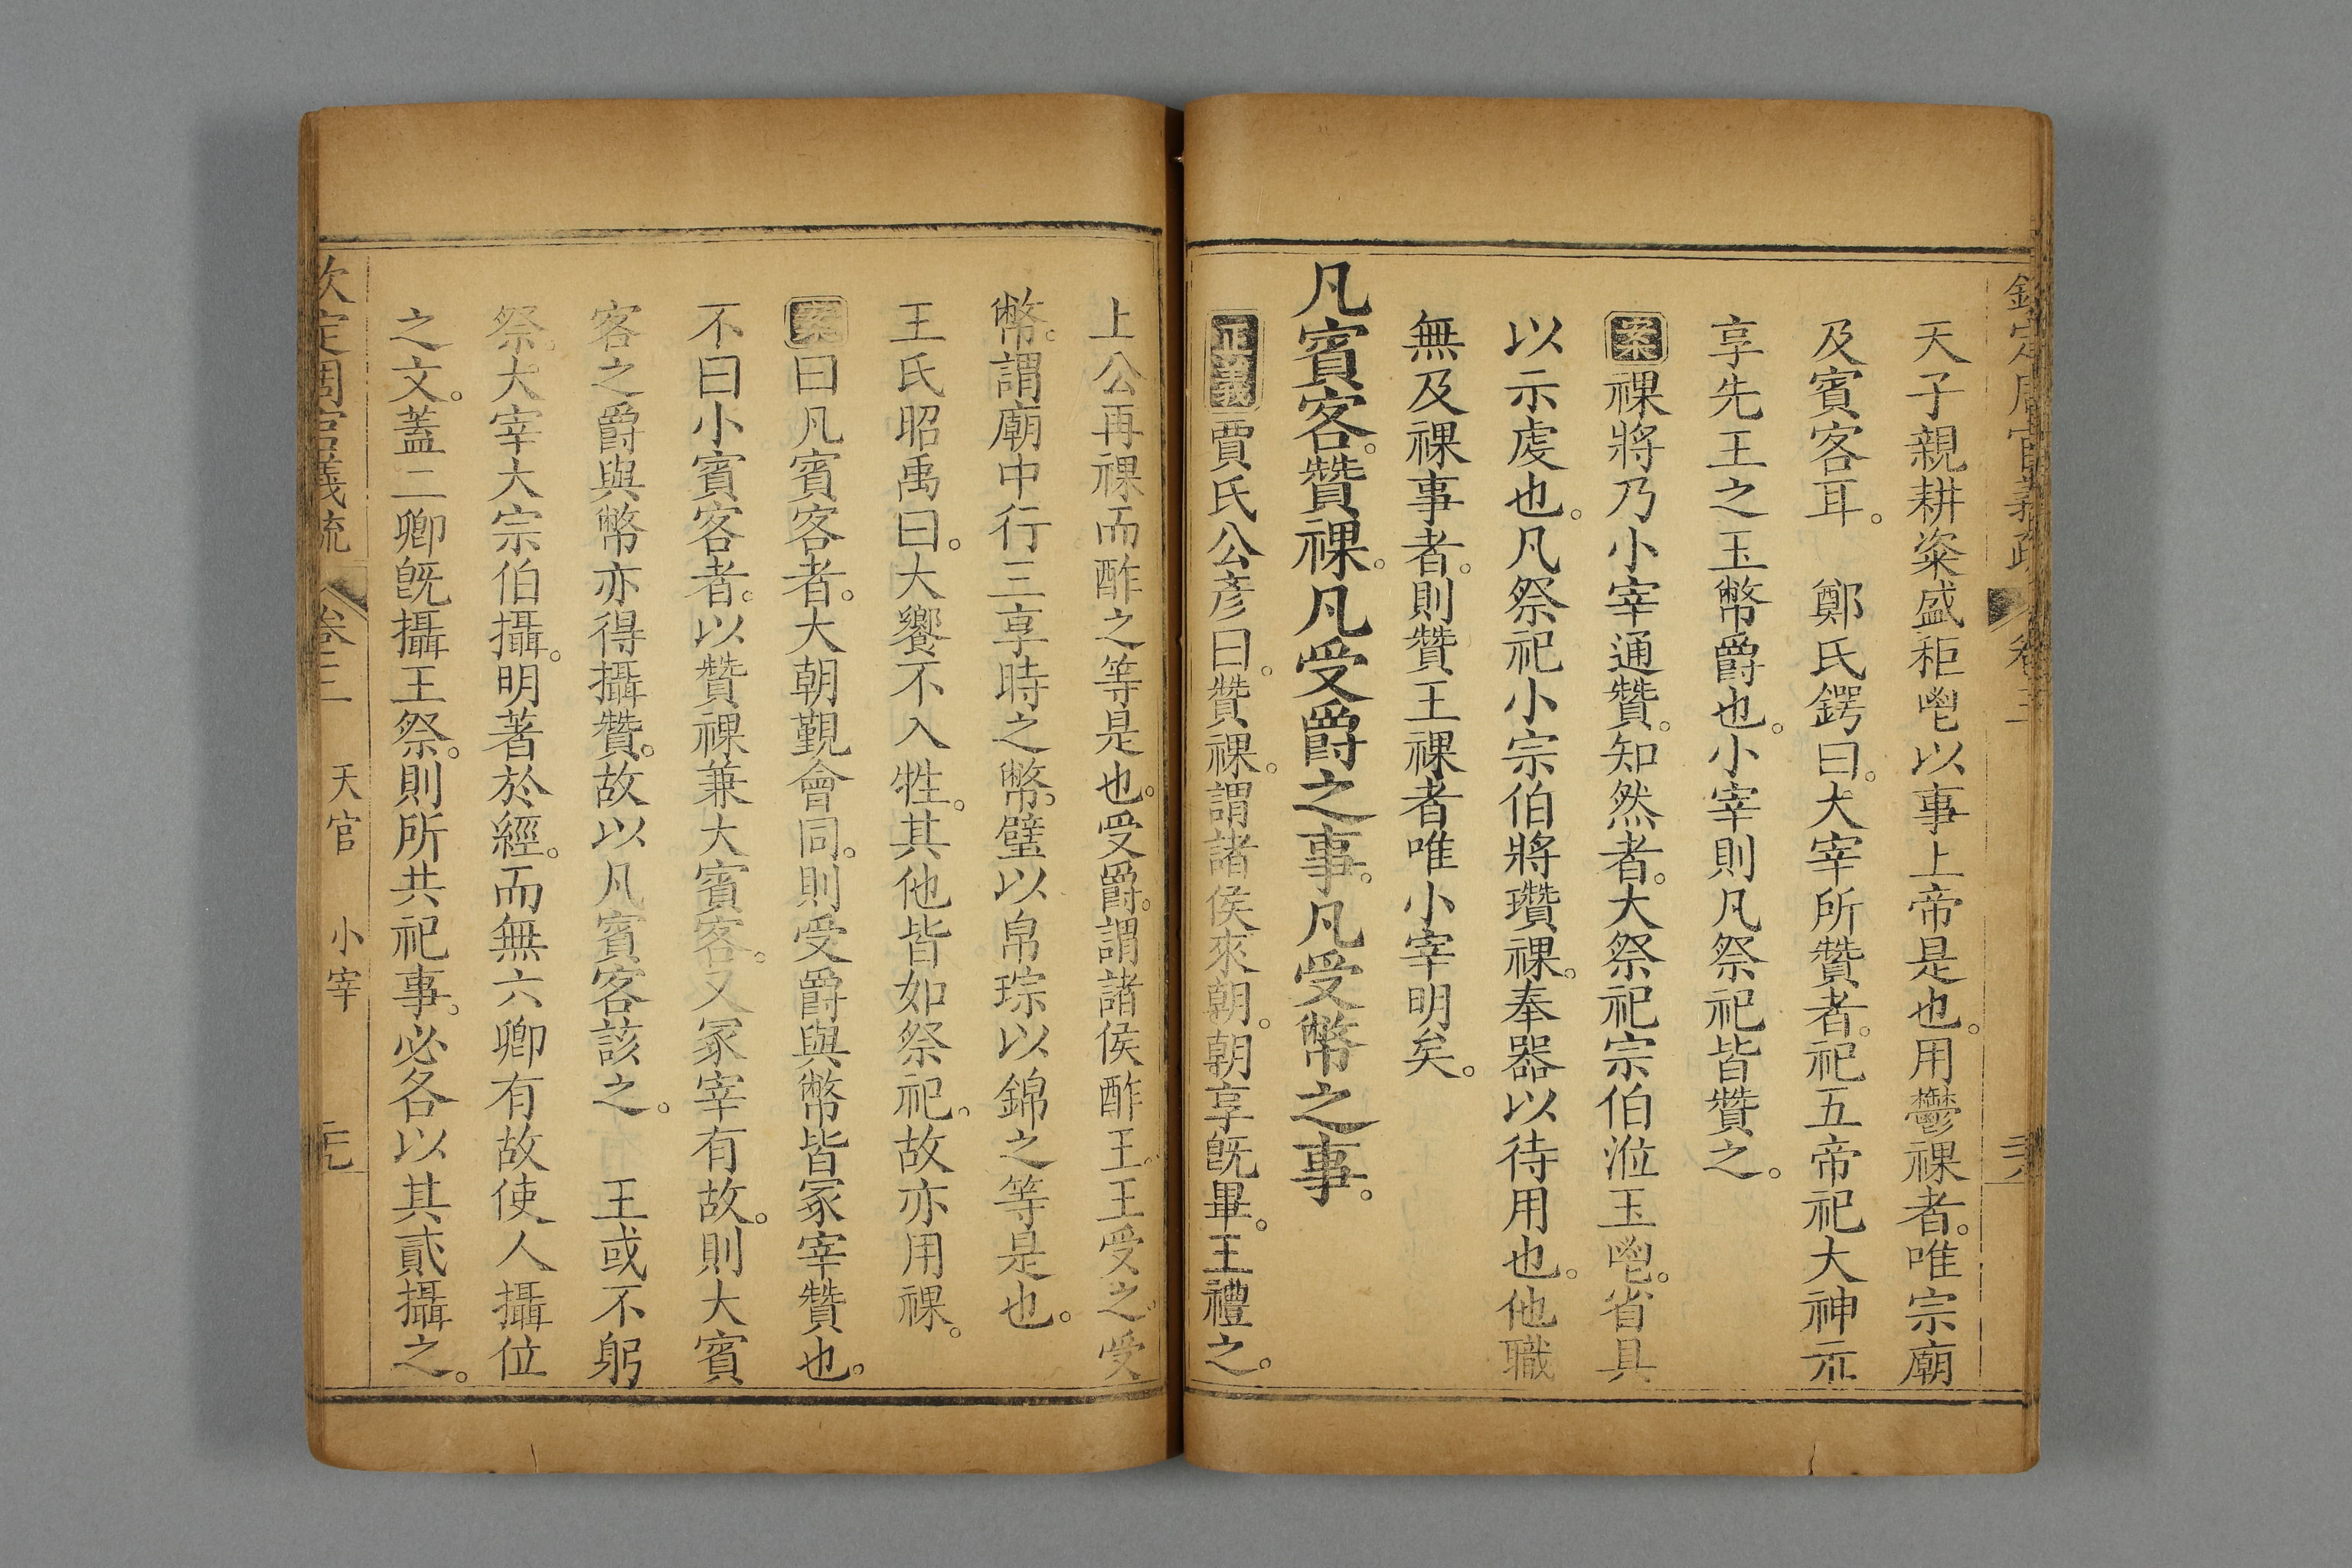 欽定周官義疏 卷三 二六
天子親耕粢盛秬鬯以事上帝是也。用鬱祼者。唯宗廟
及賓客耳。 鄭氏鍔曰。大宰所贊者。祀五帝祀大神示
享先王之玉幣爵也。小宰則凡祭祀皆贊之。
案祼將乃小宰通贊。知然者。大祭祀宗伯涖玉鬯。省具
以示虔也。凡祭祀小宗伯將瓚祼。奉器以待用也。他職
無及祼事者。則贊王祼者唯小宰明矣。
凡賓客。贊祼。凡受爵之事。凡受幣之事。
正義賈氏公彥曰。贊祼。謂諸侯來朝。朝享旣畢。王禮之。
上公再祼而酢之等是也。受爵。謂諸侯酢王。王受之。受
幣。謂廟中行三享時之幣。璧以帛琮以錦之等是也。
王氏昭禹曰。大饗不入牲。其他皆如祭祀。故亦用祼。
案曰凡賓客者。大朝覲會同。則受爵與幣皆冢宰贊也。
不曰小賓客者。以贊祼兼大賓客。又冢宰有故。則大賓
客之爵與幣亦得攝贊。故以凡賓客該之。 王或不躬
祭。大宰大宗伯攝。明著於經。而無六卿有故使人攝位
之文。蓋二卿旣攝王祭。則所共祀事。必各以其貳攝之。
欽定周官義疏 卷三 天官 小宰 二七